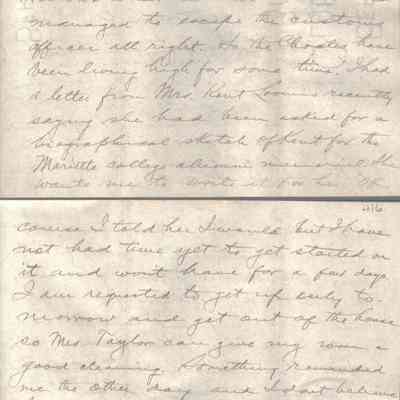 managed to escape the customs
officer all right. So the Choates have
been living high for some time. I had
a letter from Mrs. Kent Loomis recently
saying she had been asked for a
biographical sketch of Kent for the
Marietta college alumni memorial. She
wants me to write it for her. Of
416
course I told her I would but I have
not had time yet to get started on
it and wont have for a few days.
I am requested to get up early to-
morrow and get out of the house
so Mrs. Taylor can give my room a
good cleaning. Something reminded
me the other day and I dont believe